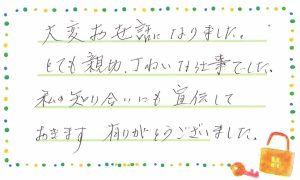 大変お世話になりました。
とても親切、丁ねいな仕事でした。
私の知り合いにも宣伝して
おきます 有りがとうございました。